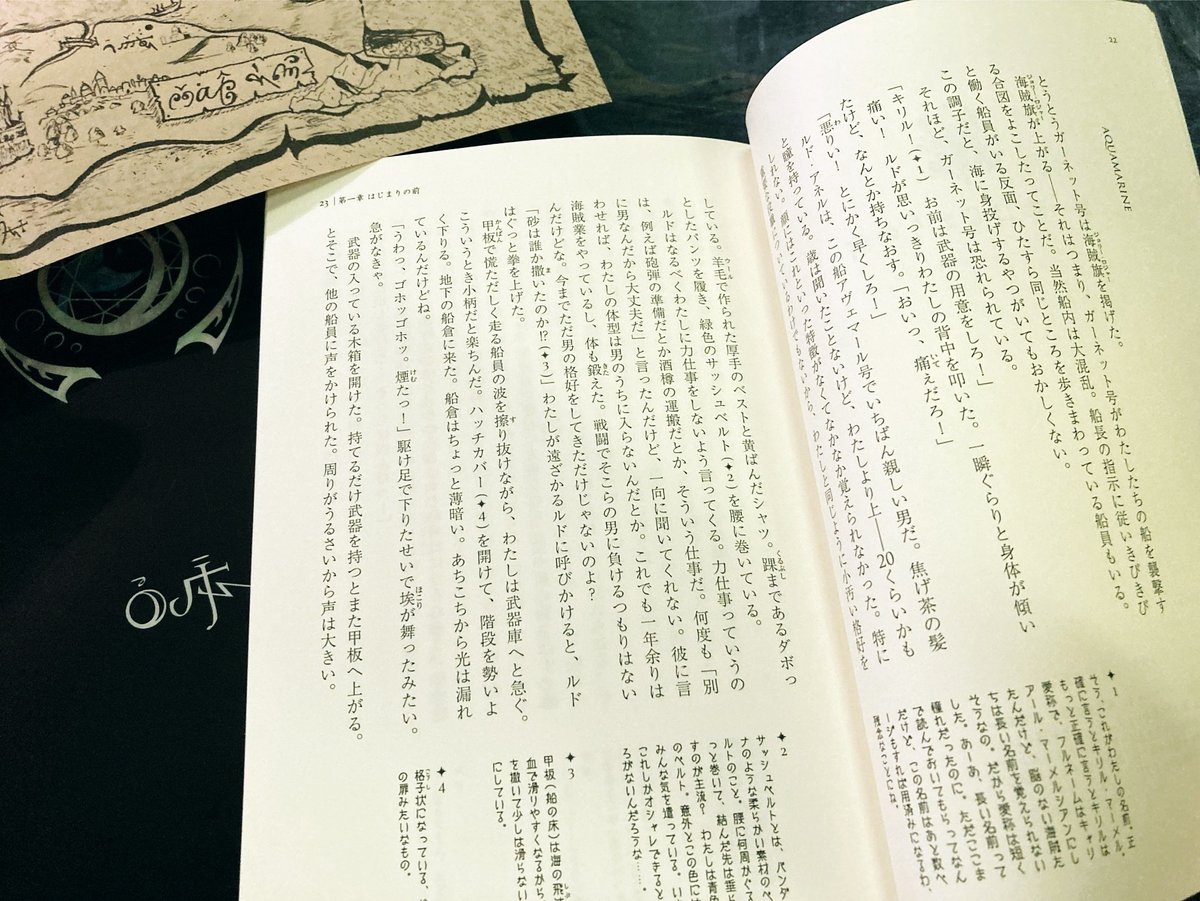 22
AQUAMARINE
とうとうガーネット号は海賊旗を掲げた。
海賊旗が上がる――それはつまり、ガーネット号がわたしたちの船を襲撃す
る合図をよこしたってことだ。当然船内は大混乱。船長の指示に従いきびきび
と働く船員がいる反面、ひたすら同じところを歩きまわっている船員もいる。
この調子だと、海に身投げするやつがいてもおかしくない。
それほど、ガーネット号は恐れられている。
「キリルー（✦1） お前は武器の用意をしろ！」
痛い！ ルドが思いっきりわたしの背中を叩いた。一瞬ぐらりと身体が傾い
たけど、なんとか持ちなおす。「おいっ、痛えだろー」
「悪りぃ！ とにかく早くしろー」
ルド・アネルは、この船アヴェマール号でいちばん親しい男だ。焦げ茶の髪
と瞳を持っている。歳は聞いたことないけど、わたしより上――20くらいかも
しれない。顔にはこれといった特徴がなくてなかなか覚えられなかった。特に
わたしと同じように小汚い格好を
23 | 第一章 はじまりの前
している。羊毛で作られた厚手のベストと黄ばんだシャツ。踝まであるダボっ
としたパンツを履き、緑色のサッシュベルト（✦2）を腰に巻いている。
ルドはなるべくわたしに力仕事をしないよう言ってくる。力仕事っていうの
は、例えば砲弾の準備だとか酒樽の運搬だとか、そういう仕事だ。何度も「別
に男なんだから大丈夫だ」と言ったんだけど、一向に聞いてくれない。彼に言
わせれば、わたしの体型は男のうちに入らないんだとか。これでも一年余りは
海賊業をやっているし、体も鍛えた。戦闘でそこらの男に負けるつもりはない
んだけどな。今までただ男の格好をしてきただけじゃないのよ？
「砂は誰か撒いたのか!?（✦3）」わたしが遠ざかるルドに呼びかけると、ルド
はぐっと拳を上げた。
甲板で慌ただしく走る船員の波を擦り抜けながら、わたしは武器庫へと急ぐ。
こういうとき小柄だと楽ちんだ。ハッチカバー（✦4）を開けて、階段を勢いよ
く下りる。地下の船倉に来た。船倉はちょっと薄暗い。あちこちから光は漏れ
ているんだけどね。
「うわっ、ゴホッゴホッ。煙たっ！」駆け足で下りたせいで埃が舞ったみたい。
急がなきゃ。
武器の入っている木箱を開けた。持てるだけ武器を持つとまた甲板へ上がる。
とそこで、他の船員に声をかけられた。周りがうるさいから声は大きい。
✦1
そう、これがわたしの名前。正
確に言うとキリル・マーメル。
もっと正確に言うとキリルは
愛称で、フルネームはキャリ
アール・マーメルシアンにし
たんだけど、脳のない海賊た
ちは長い名前を覚えられない
そうなの。だから愛称は短く
した。あーあ、長い名前って
憧れだったのに。ただここま
で読んでおいてもらってなん
だけど、この名前はあと数ペ
ージもすれば用済みになるわ。
残念なことにね。
✦2
サッシュベルトとは、バンダ
ナのような柔らかい素材のベ
ルトのこと。腰に何周かぐる
っと巻いて、結んだ先は垂ら
すのが主流？ わたしは青色
のベルト。意外とこの色には
みんな気を遣っている。
これしかオシャレできると
ろがないんだろうな……。
✦3
甲板（船の床）は海の飛
血で滑りやすくなるから
を撒いて少しは滑らない
にしている。
✦4
格子状になっている、
の扉みたいなもの。